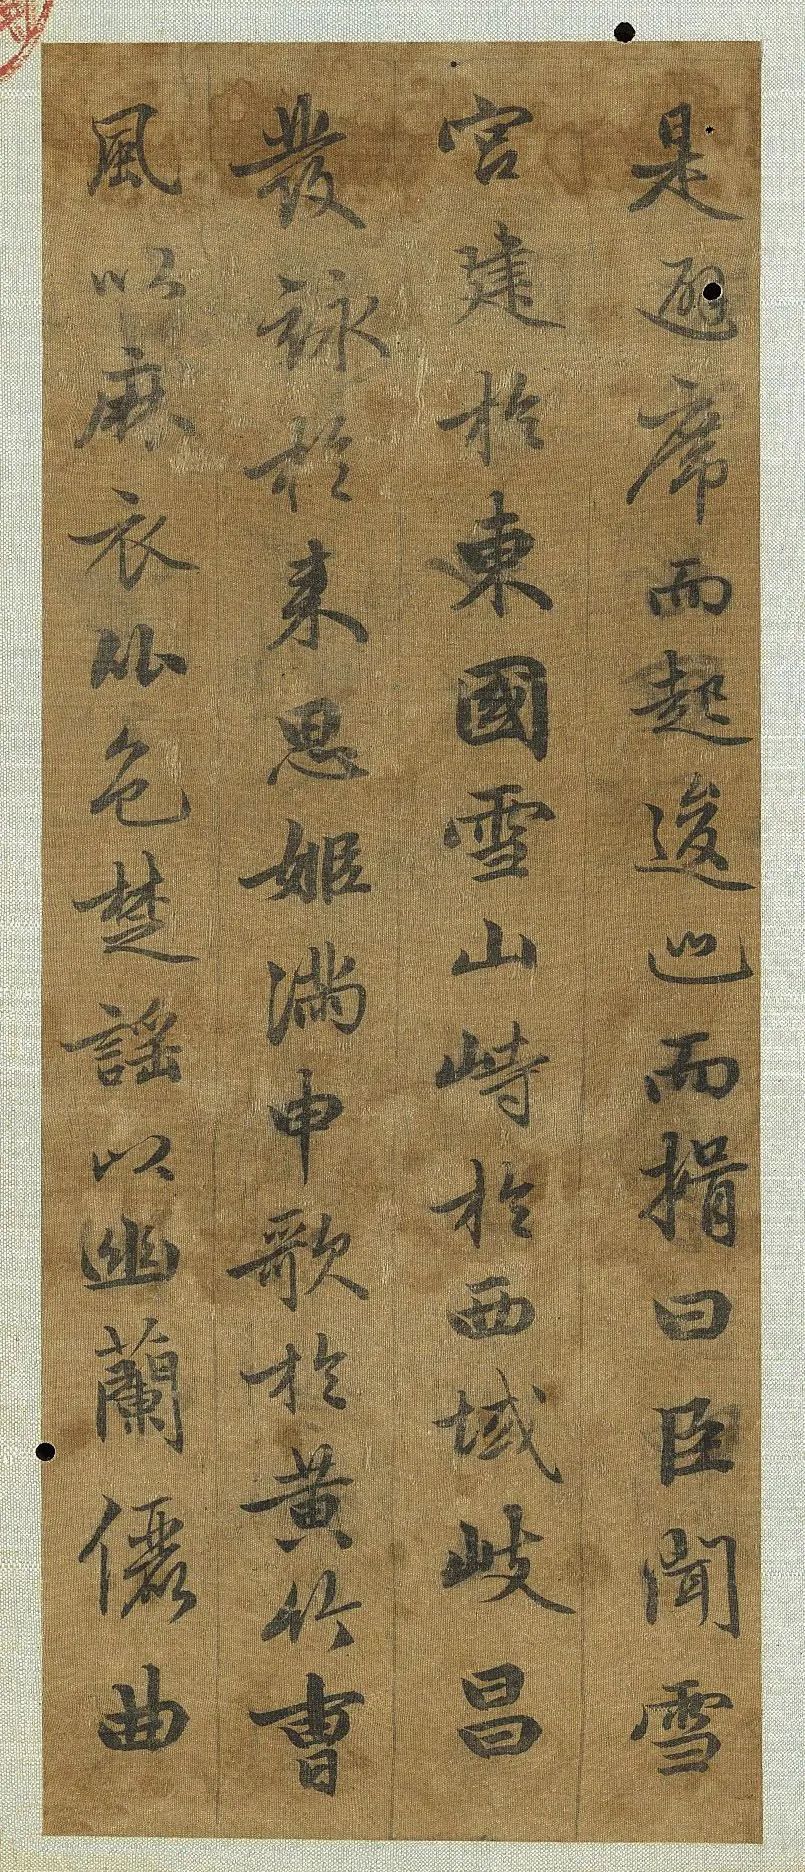 是避席而起逡巡而揖曰臣聞雪
宮建於東國雪山峙於西域岐昌
發詠於来思姬滿申歌於黃竹曹
風以麻衣比色楚謠以幽蘭儷曲